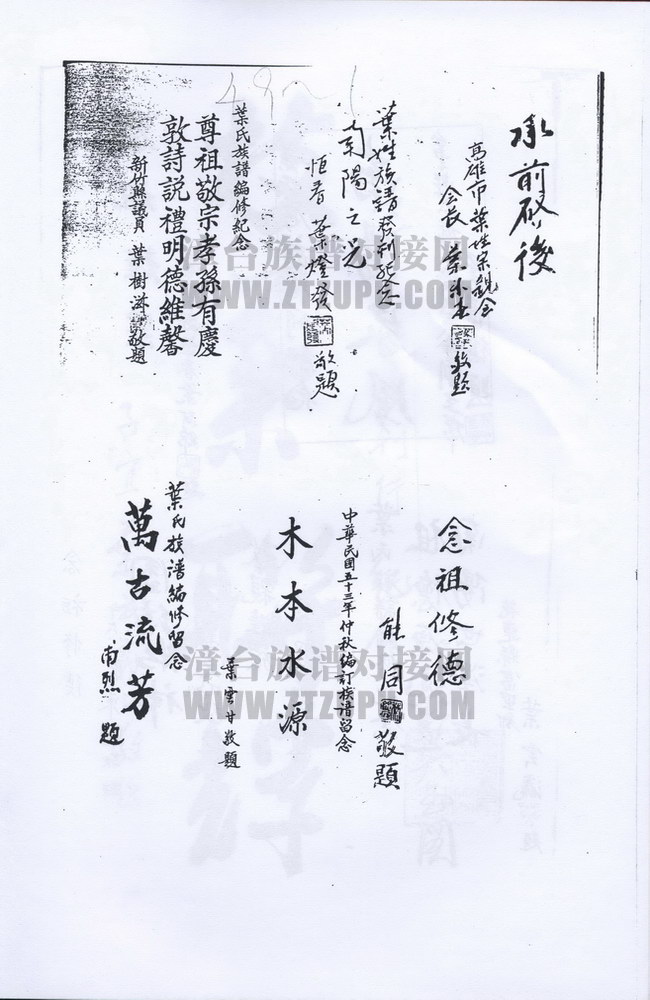 承前啓後
高雄市葉姓宗親会
会長
敬題
葉姓族譜發刊紀念
南陽之光
恒春 葉燈發
敬題
葉氏族譜編修紀念
尊祖敬宗孝孫有慶
敦詩説禮明德維馨
新竹縣議員 葉樹滋敬題
念祖修德
能同
敬題
中華民國五十三年仲秋編訂族譜留念
木本水源
葉雲甘敬題
葉氏族譜編修留念
萬古流芳
南烈題
漳台族谱对接网
WWW.ZTZUPU.COM
漳台族谱对接网
WWW.ZTZUPU.COM